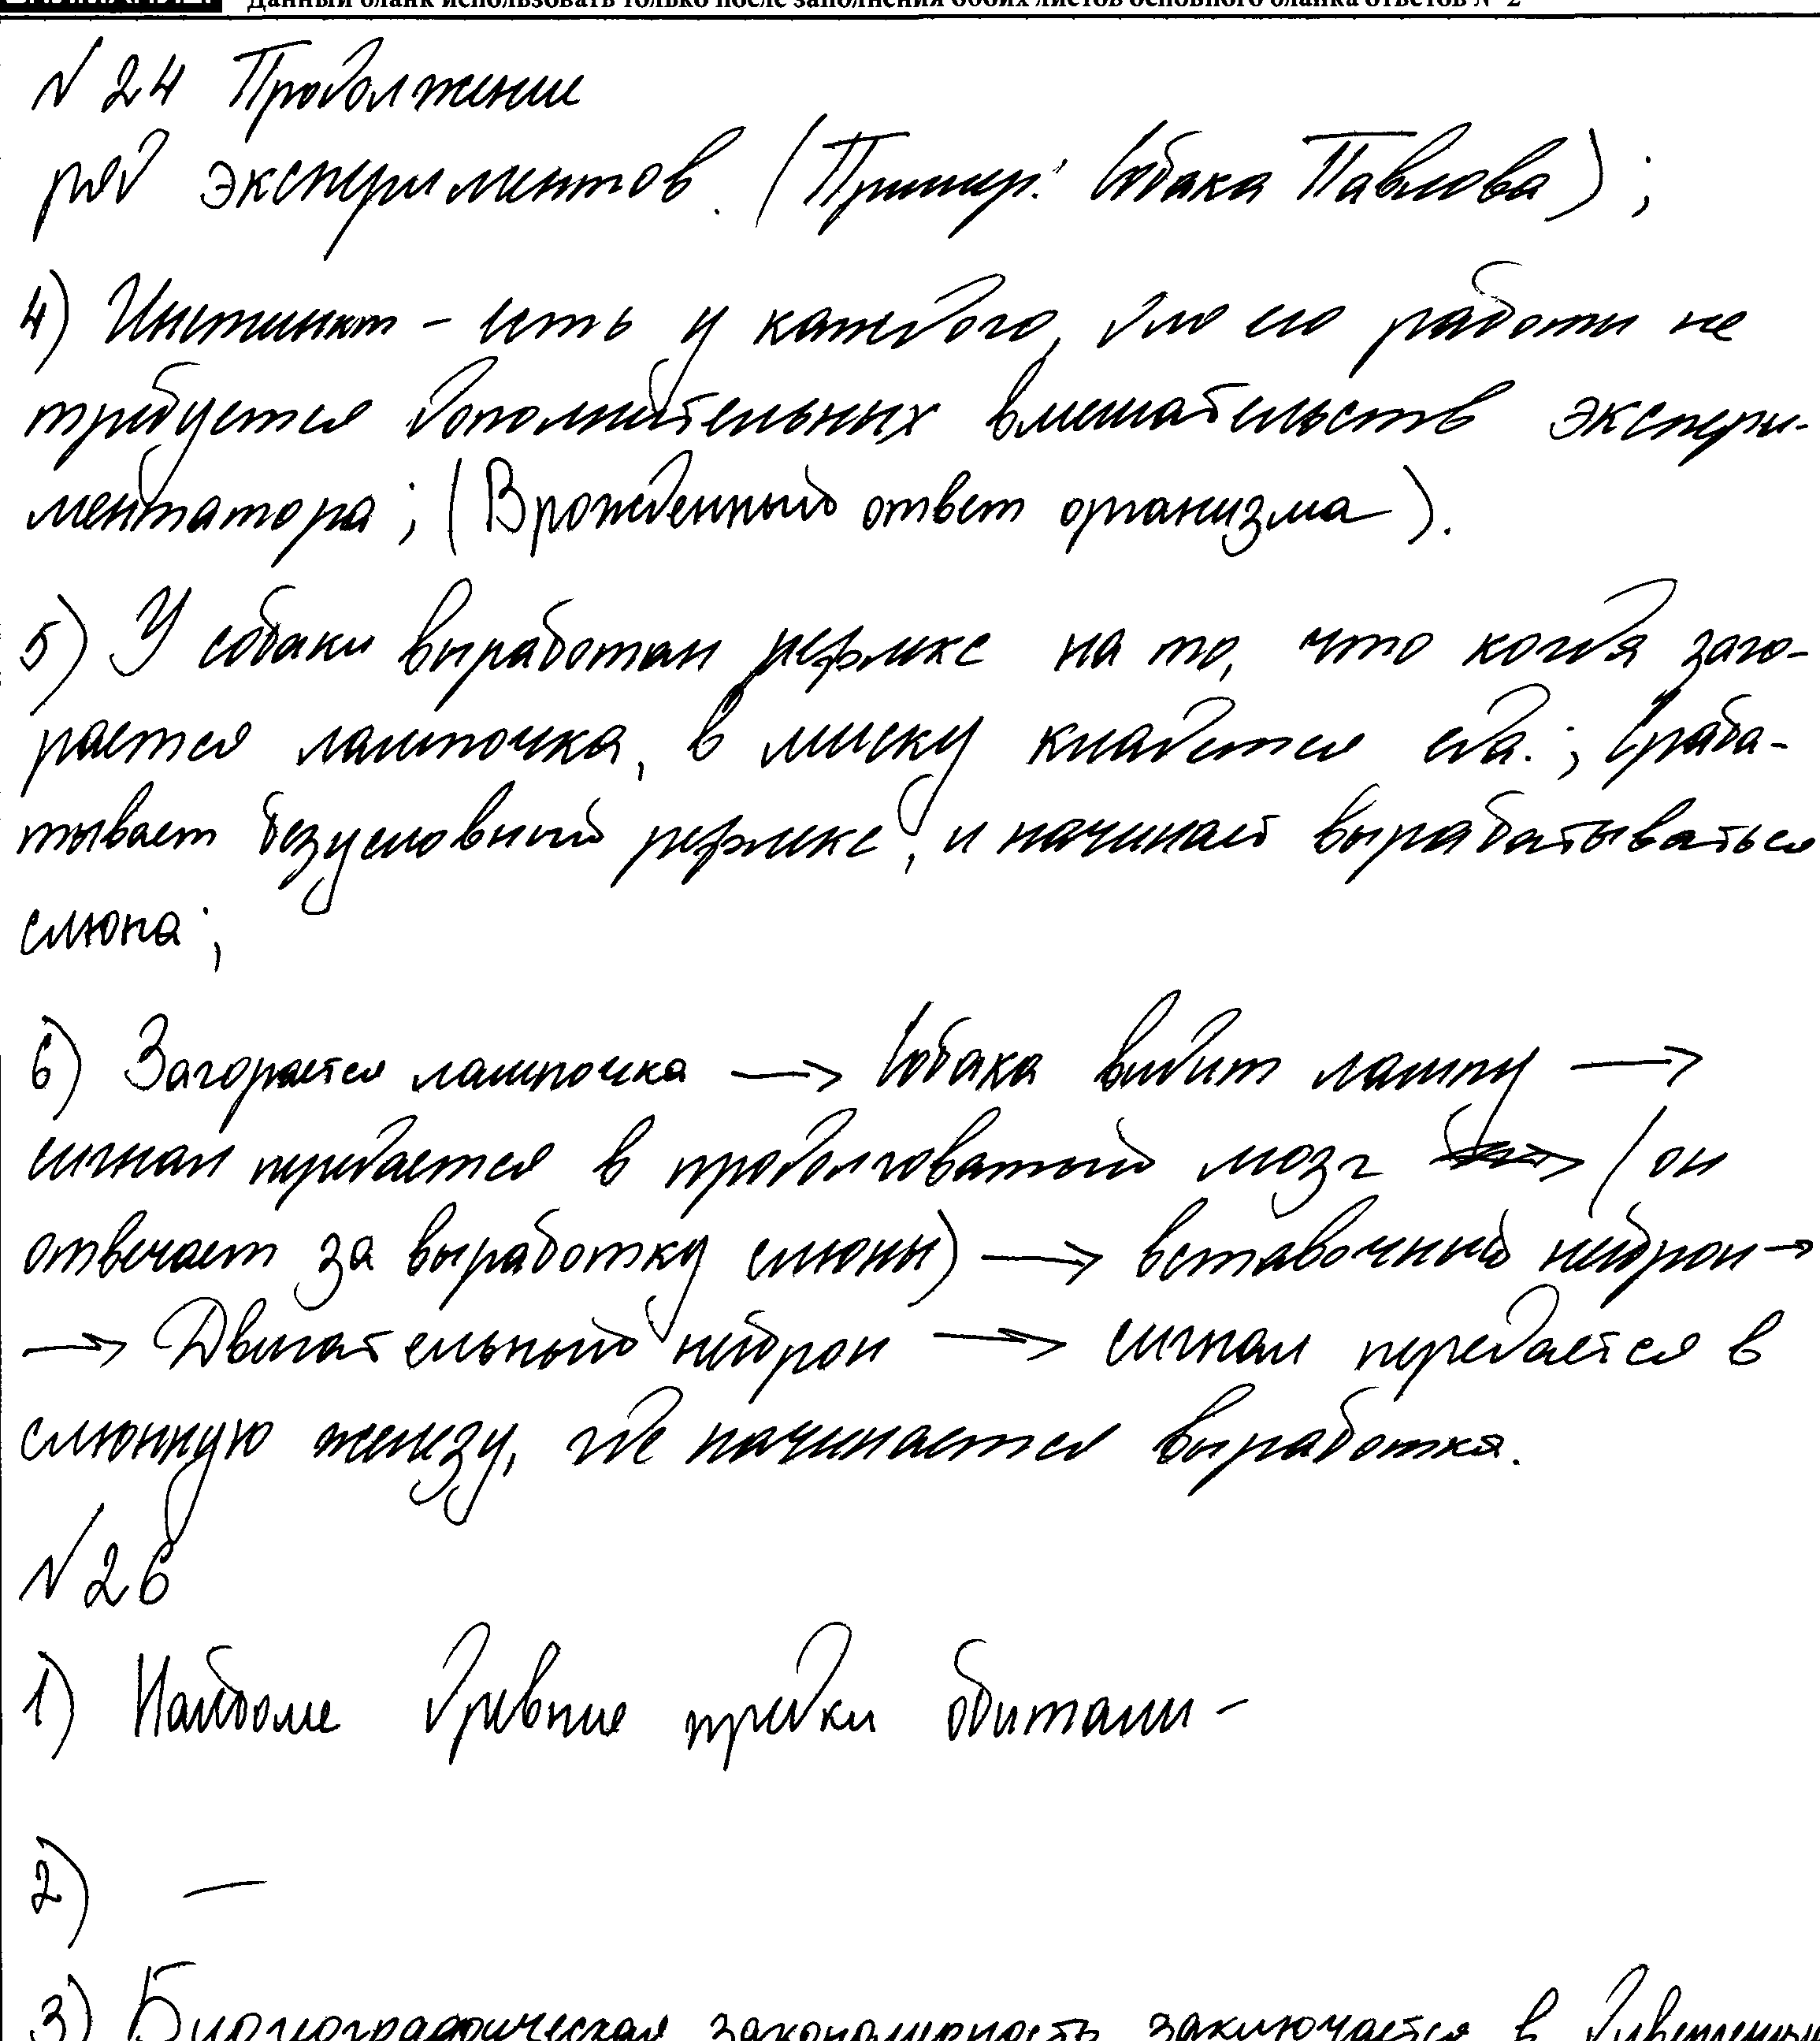 Данный бланк использовать только после заполнения обоих листов основного бланка ответов № 2
№ 24 Продолжение
ряд экспериментов. (Пример: Собака Павлова);
4) Инстинкт - есть у каждого, для его работы не
требуется дополнительных вмешательств экспери-
ментатора; (Врожденный ответ организма).
5) У собаки выработан рефлекс на то, что когда заго-
рается лампочка, в миску кладется еда.; Сраба-
тывает безусловный рефлекс, и начинает вырабатываться
слюна;
6) Загорается лампочка → Собака видит лампу →
сигнал передается в продолговатый мозг (он
отвечает за выработку слюны) → вставочный нейрон →
→ Двигательный нейрон → сигнал передается в
слюнную железу, где начинается выработка.
№ 26
1) Наиболе древние предки обитали -
2) —
3) Биогеографическая закономерность заключается в